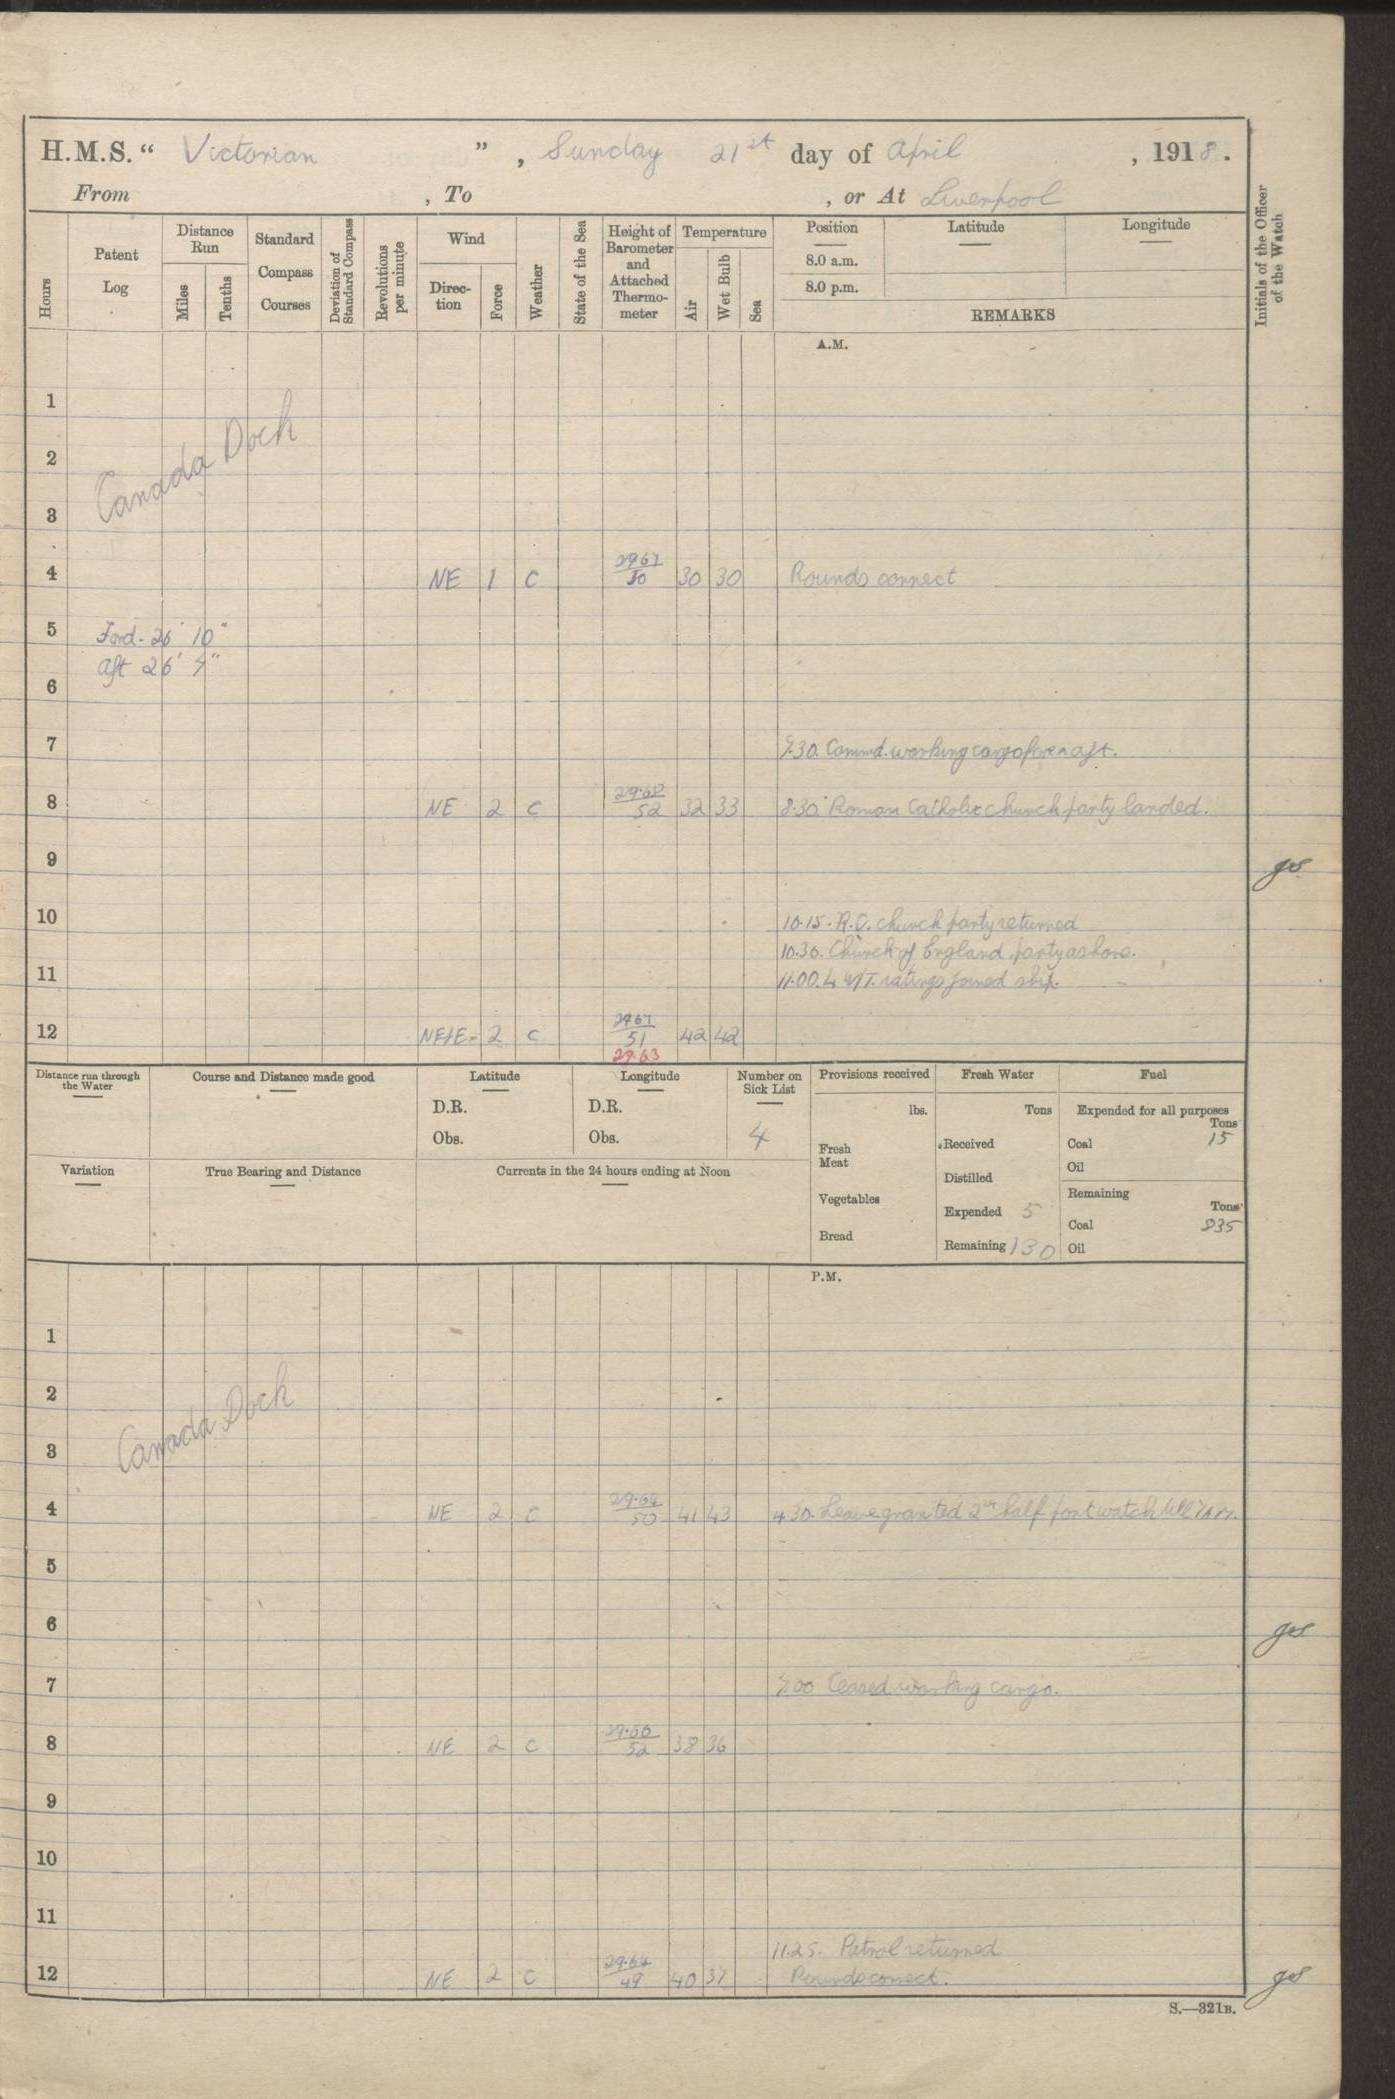 H.M.S. “ Victorian ” , Sunday 21st day of April , 1918.
From , To , or At Liverpool
Hours
Patent Log
Distance Run
Miles
Tenths
Standard Compass Courses
Deviation of Standard Compass
Revolutions per minute
Wind
Direction
Force
Weather
State of the Sea
Height of Barometer and Attached Thermometer
Temperature
Air
Wet Bulb
Sea
Position
8.0 a.m.
8.0 p.m.
Latitude
Longitude
REMARKS
Initials of the Officer of the Watch
A.M.
1
2
Canada Dock
3
4 NE 1 C 2967 50 30 30 Rounds correct
5 Ford - 26' 10"
Aft 26' 7"
6
7 7.30. Commd. working cargo fore n aft.
8 NE 2 C 52 32 33 8.30 Roman Catholic church party landed.
9 gs
10 10.15. R.C. church party returned
10.30. Church of England party ashore.
11 11.00. 4 W/T. ratings joined ship.
12 NE/E 2 C 2967 51 42 42
29.63
Distance run through the Water
Course and Distance made good
Latitude
D.R.
Obs.
Longitude
D.R.
Obs.
Number on Sick List
4
Provisions received
lbs.
Fresh Meat
Vegetables
Bread
Fresh Water
Tons
Received
Distilled
Expended 5
Remaining 130
Fuel
Expended for all purposes
Tons
Coal 15
Oil
Remaining
Tons
Coal 835
Oil
Variation
True Bearing and Distance
Currents in the 24 hours ending at Noon
P.M.
1
2
Canada Dock
3
4 NE 2 C 29.64 50 41 43 4.30. Leave granted 2nd half port watch till 7 AM.
5
6 gs
7 7.00 Ceased working cargo.
8 NE 2 C 29.66 52 38 36
9
10
11
11.25. Patrol returned
12 NE 2 C 29.64 49 40 37 Rounds correct. gs
S.—321B.